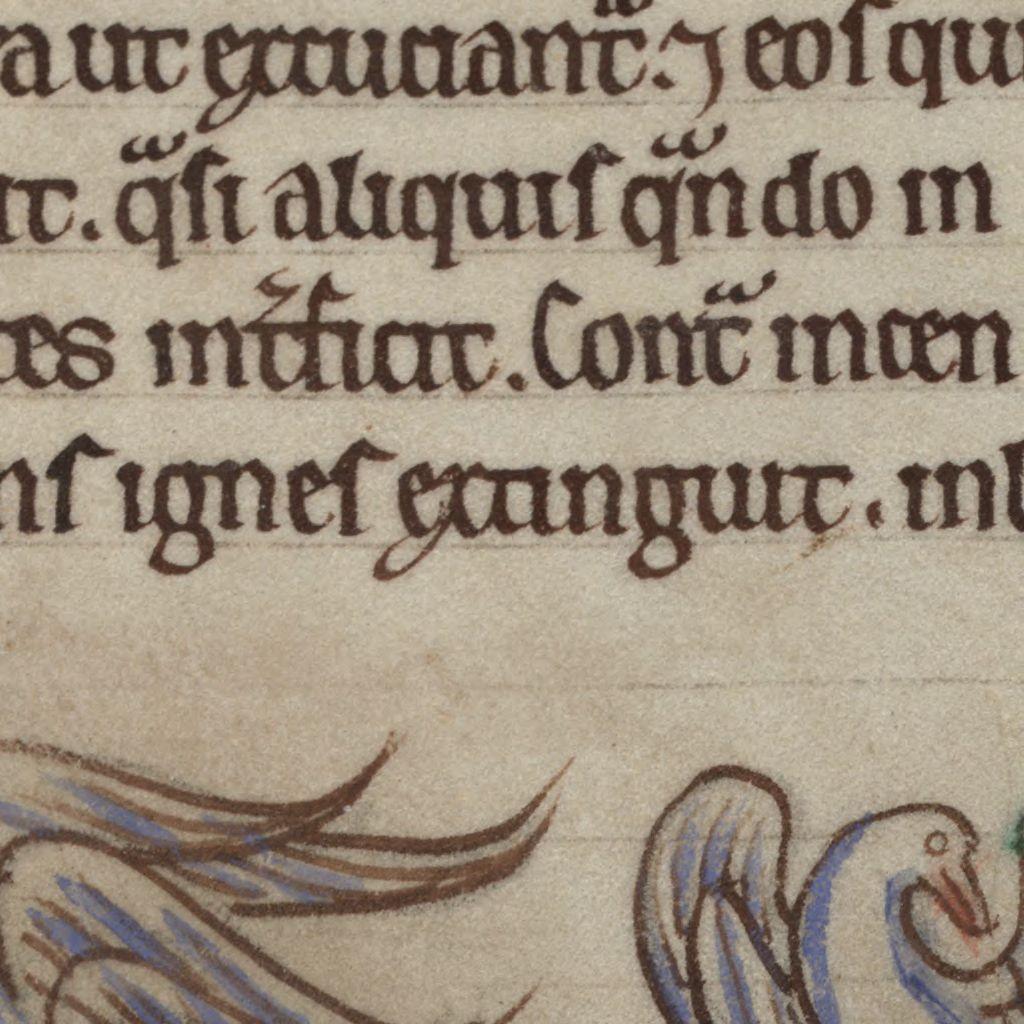 a ut excruciantᷓ. ⁊ eoſ qui
it. qᷓſi aliquiſ qᷓndo in
tes int̾ficit. Contᷓ incen
nſ igneſ extinguit. in